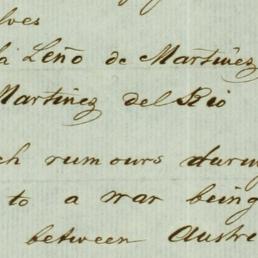 lves
a Leño de Martiñez
Martiñez del Rio
ch rumours during
to a war being
between Austr